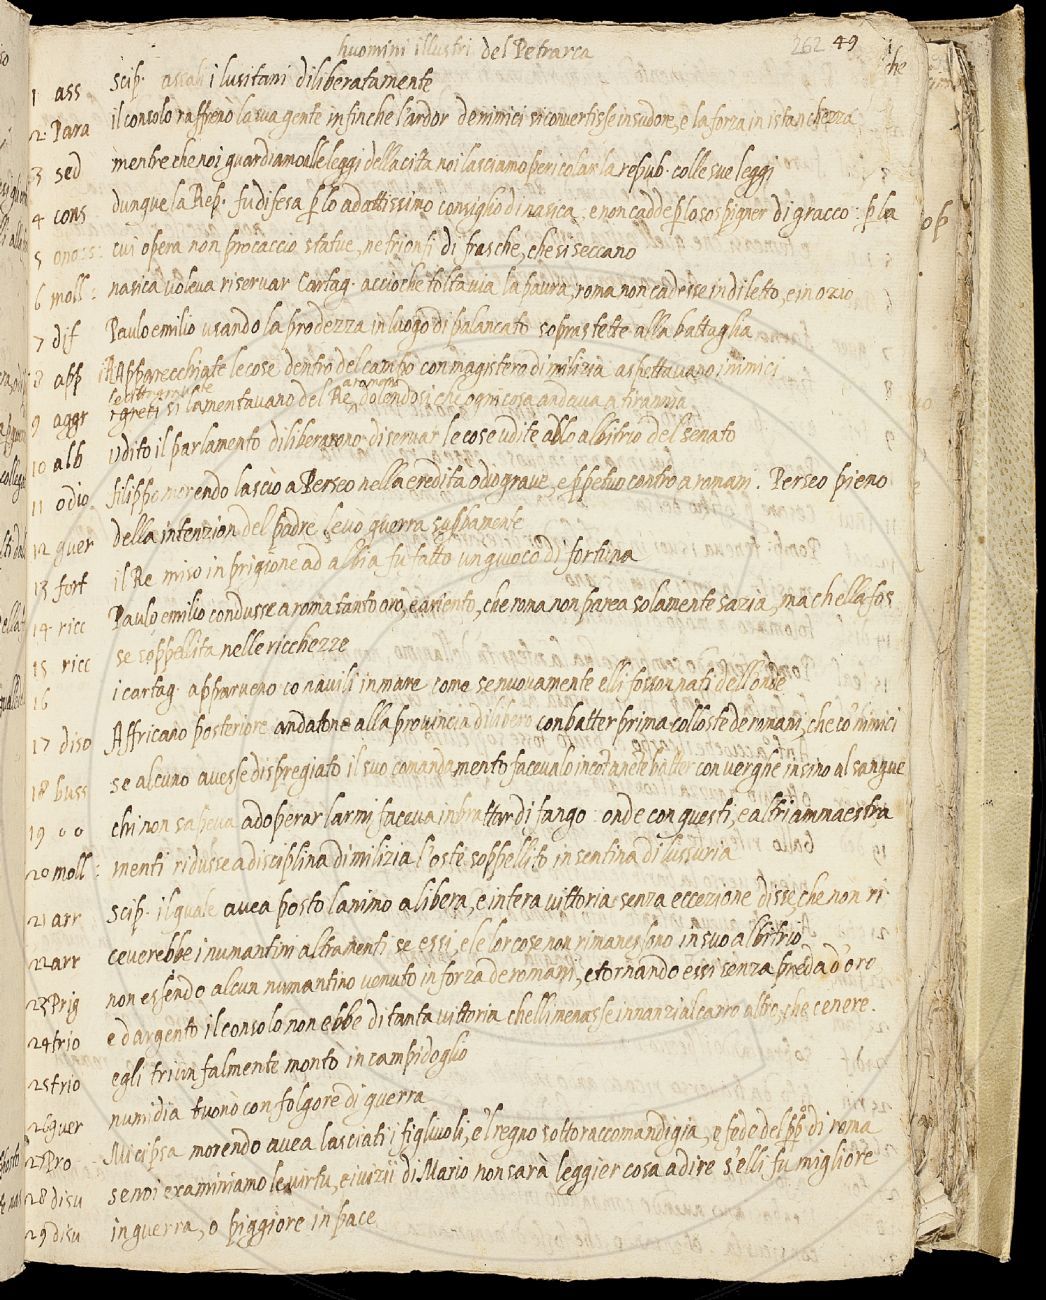 huomini illustri del Petrarca 262 49
1 ass Scip. assali i lusitani diliberatamente
2 Para il consolo raffrenò la sua gente infinche l'ardor de nimici si convertisse in sudore, e la forza in istanchezza
3 sed mentre che noi guardiamo alle leggi della citta noi lasciamo pericolar la repub. colle sue leggi
4 cons dunque la Rep. fu difesa p lo adattissimo consiglio di nasica, e non cadde p lo sospigner di gracco: p la
5 cui opera non procaccio statue, ne trionfi di frasche, che si seccano
6 moll: nasica voleva riservar Cartag. accioche tolta via la paura, roma non cadesse in diletto, e in ozio
7 dif Paulo emilio usando la prodezza in luogo di palancato soprastette alla battaglia
8 app Apparecchiate le cose dentro del campo con magistero di milizia aspettavano i nimici
9 aggr i greci si lamentavano del Re, dolendosi che ogni cosa andava a tirannia
10 alb Udito il parlamento diliberarono di servar le cose udite allo albitrio del senato
11 odio filippo morendo lasciò a Perseo nella eredita odio grave, e ppetuo contro a romani. Perseo pieno
12 guer della intenzion del padre levò guerra
13 fort il Re miso in prigione ad albia fu fatto un giuoco di fortuna
14 ricc Paulo emilio condusse a roma tanto oro, e ariento, che roma non parea solamente sazia, ma chella fos
15 ricc se soppellita nelle ricchezze
16 i cartag. apparveno co navili in mare come se nuovamente elli fosson nati dell onde
17 diso Affricano posteriore andatone alla provincia dilibero conbatter prima colloste de romani, che co nimici
18 buss se alcuno avesse dispregiato il suo comandamento facevalo incotanete batter con verghe insino al sangue
19 o o chi non sapeva adoperar larmi faceva inbrattar di fango: onde con questi, e altri ammaestra
20 moll: menti ridusse a disciplina di milizia l'oste soppellito in sentina di lussuria
21 arr Scip. il quale avea posto lanimo a libera, e intera vittoria senza eccezione disse, che non ri
22 arr ceverebbe i numantini altramenti se essi, e le lor cose non rimanessono in suo albitrio
23 Prig non essendo alcun numantino venuto in forza de romani, e tornando essi senza preda d'oro
24 trio e d argento il consolo non ebbe di tanta vittoria chelli menasse innanzi al carro altro, che cenere.
25 trio egli triunfalmente monto in campidoglio
26 guer numidia tuonò con folgore di guerra
27 Pro Micipsa morendo avea lasciati i figliuoli, e'l regno sotto raccomandigia, e fede del pp° di roma
28 disu se noi examiniamo le virtu, e i vizii di Mario non sarà leggier cosa a dire s'elli fu migliore
29 disu in guerra, o piggiore in pace